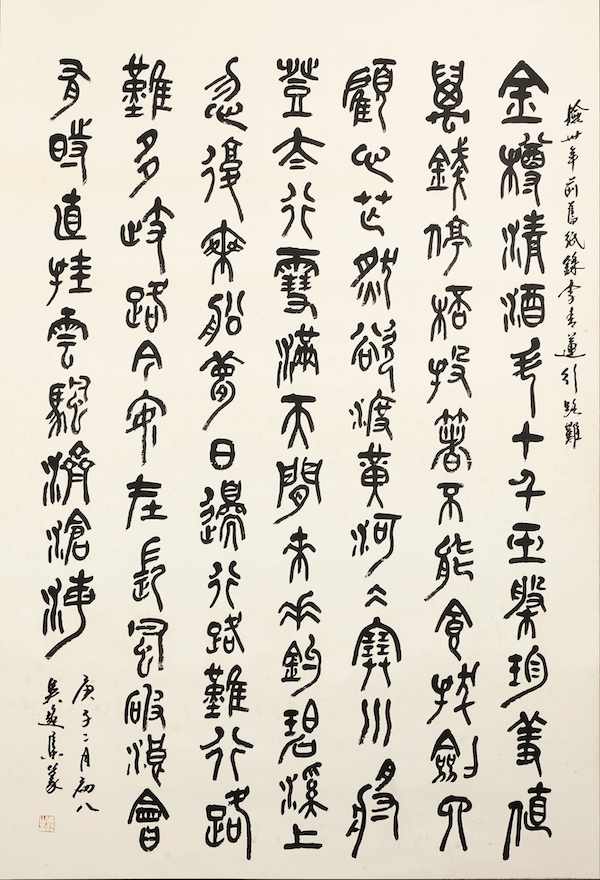 撿卅年前舊紙錄李青蓮行路難
金樽清酒斗十千玉槃珍羞值
萬錢停桮投箸不能食拔劍四
顧心芒然欲渡黃河冰塞川將
登太行雪滿天閒來垂釣碧溪上
忽復乘船夢日邊行路難行路
難多歧路今安在長風破浪會
有時直挂雲颿濟滄海
庚子二月初八
吳集篆